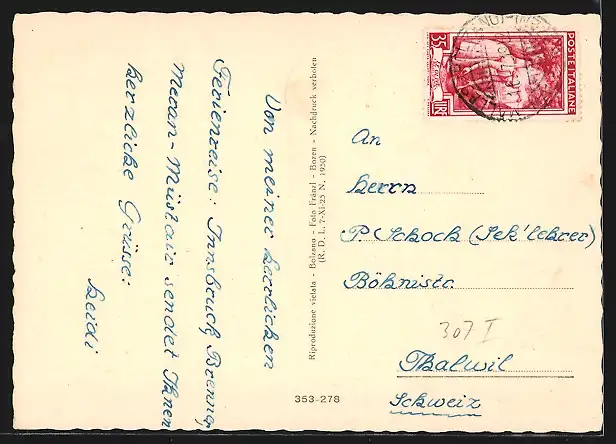 Von meiner herrlichen
Ferienreise: Innsbruck, Brenner,
Meran - Müstair sendet Ihnen
herzliche Grüsse:
Heidi
Riproduzione vietata - Bolzano - Foto Fränzl - Bozen - Nachdruck verboten
(R. D. L. 7-XI-25 N. 1950)
353-278
POSTE ITALIANE
35
LIRE
An
Herrn
P. Schoch (Sek'lehrer)
Böhnistr.
307 I
Thalwil
Schweiz